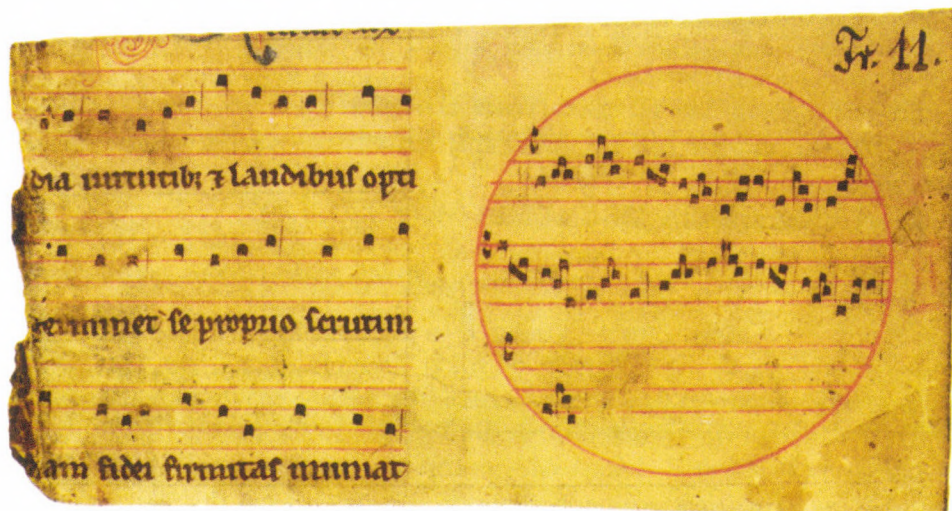 Fr. 11.
dia uirtutib; ⁊ laudibus opti
se proprio scrutini
am fidei firmitas muniat